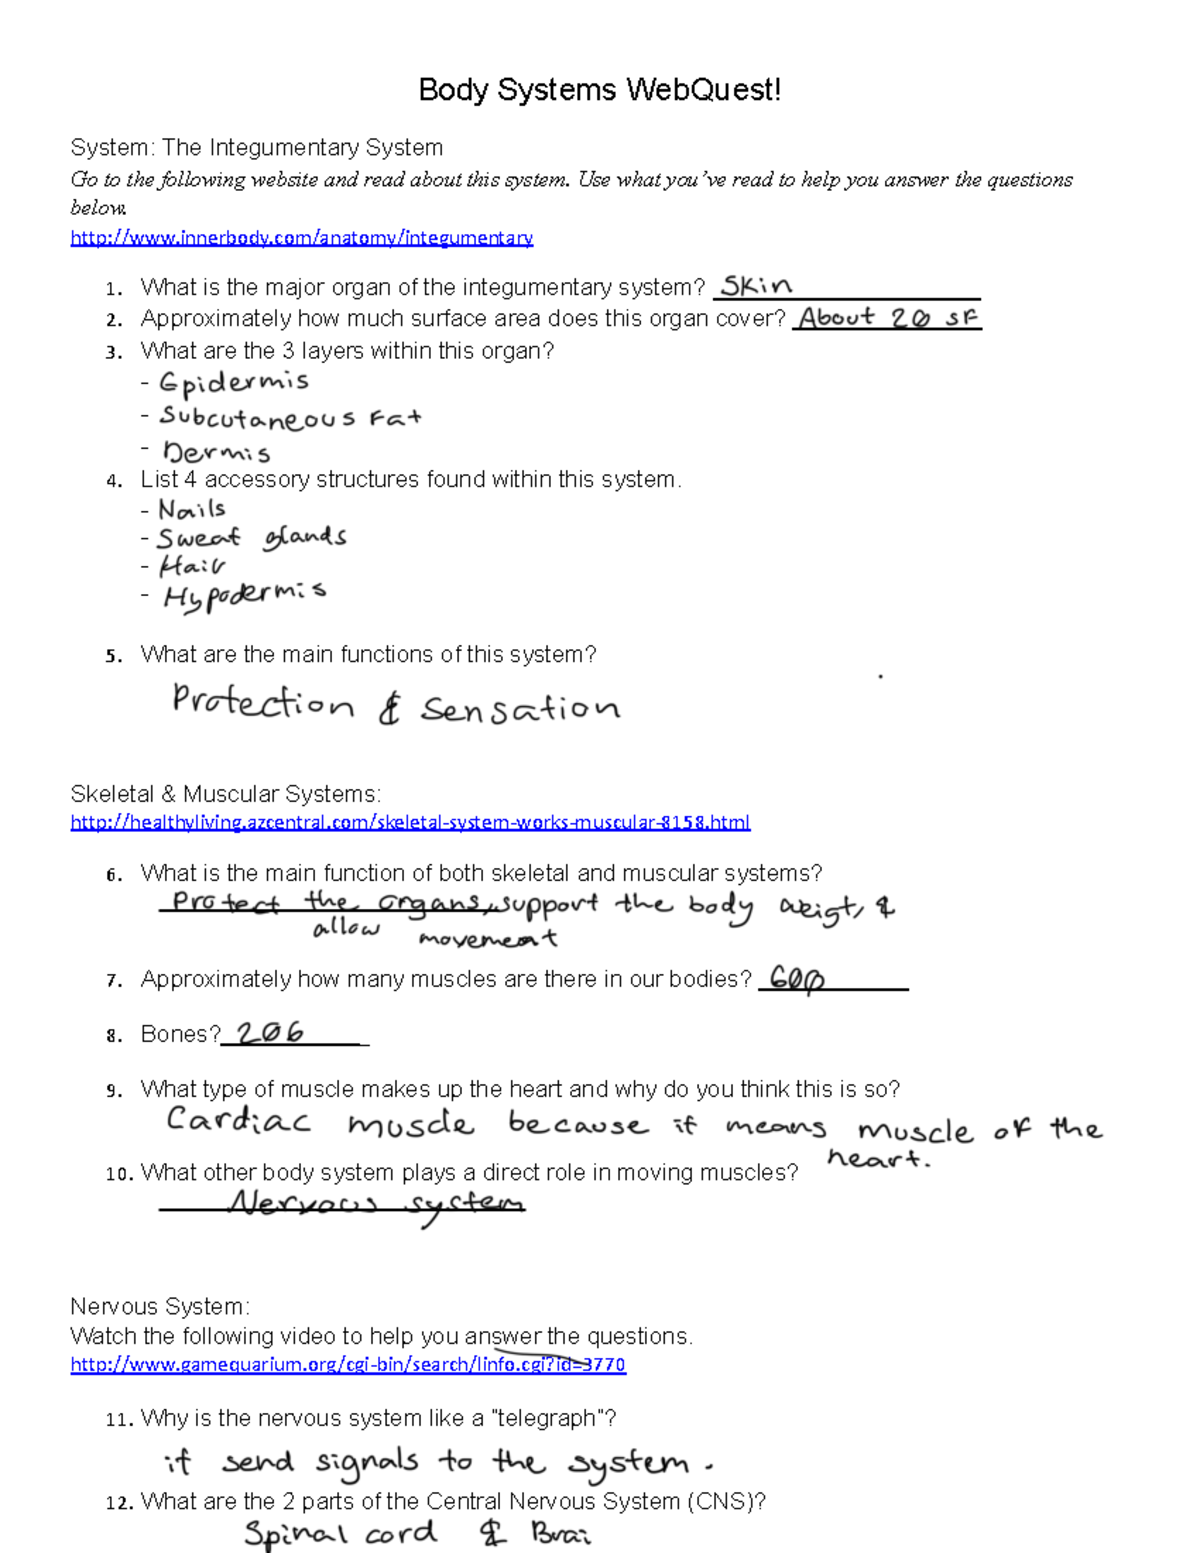 Body Systems WebQuest!
System: The Integumentary System
Go to the following website and read about this system. Use what you've read to help you answer the questions
below.
http://www.innerbody.com/anatomy/integumentary
1. What is the major organ of the integumentary system? Skin
2. Approximately how much surface area does this organ cover? About 20 SF
3. What are the 3 layers within this organ?
- Epidermis
- Subcutaneous Fat
- Dermis
4. List 4 accessory structures found within this system.
- Nails
- Sweat glands
- Hair
- Hypodermis
5. What are the main functions of this system?
Protection & Sensation
Skeletal & Muscular Systems:
http://healthyliving.azcentral.com/skeletal-system-works-muscular-8158.html
6. What is the main function of both skeletal and muscular systems?
Protect the organs, support the body weigt, &
allow movement
7. Approximately how many muscles are there in our bodies? 600
8. Bones? 206
9. What type of muscle makes up the heart and why do you think this is so?
Cardiac muscle because it means muscle of the
heart.
10. What other body system plays a direct role in moving muscles?
Nervous system
Nervous System:
Watch the following video to help you answer the questions.
http://www.gamequarium.org/cgi-bin/search/linfo.cgi?id=3770
11. Why is the nervous system like a "telegraph"?
it send signals to the system.
12. What are the 2 parts of the Central Nervous System (CNS)?
Spinal cord & Brai